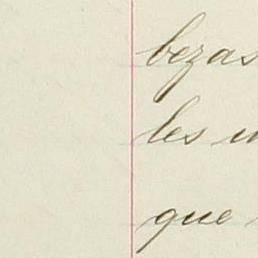 bezas
les
que